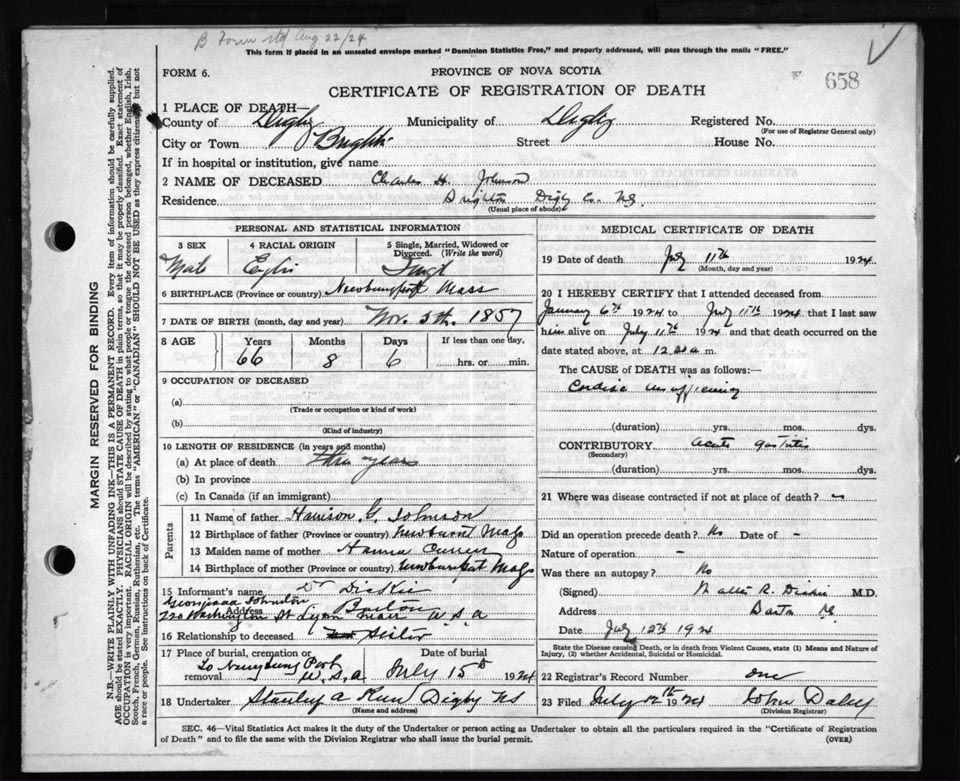 B Form std Aug 22/24
This form if placed in an unsealed envelope marked "Dominion Statistics Free," and properly addressed, will pass through the mails "FREE."
FORM 6.
PROVINCE OF NOVA SCOTIA
658
CERTIFICATE OF REGISTRATION OF DEATH
1 PLACE OF DEATH—
County of Digby Municipality of Digby Registered No.
(For use of Registrar General only)
City or Town Brighton Street House No.
If in hospital or institution, give name
2 NAME OF DECEASED Charles H. Johnson
Residence Brighton Digby Co. NS.
(Usual place of abode)
PERSONAL AND STATISTICAL INFORMATION
3 SEX 4 RACIAL ORIGIN 5 Single, Married, Widowed or Divorced. (Write the word)
Male
6 BIRTHPLACE (Province or country) Newburyport Mass
7 DATE OF BIRTH (month, day and year) Nov. 5th. 1857
8 AGE Years Months Days If less than one day,
66 8 6 hrs. or min.
9 OCCUPATION OF DECEASED
(a)
(Trade or occupation or kind of work)
(b)
(Kind of industry)
10 LENGTH OF RESIDENCE (in years and months)
(a) At place of death three years
(b) In province
(c) In Canada (if an immigrant)
Parents
11 Name of father Harrison G. Johnson
12 Birthplace of father (Province or country)
13 Maiden name of mother
14 Birthplace of mother (Province or country)
15 Informant's name Dr Dickie
Georgiana Johnston
Address
720 Washington St Lynn Mass U.S.A
16 Relationship to deceased Sister
17 Place of burial, cremation or removal Date of burial
U.S.A July 15th 1924
18 Undertaker Stanley A Digby NS
(Name and address)
MEDICAL CERTIFICATE OF DEATH
19 Date of death July 11th 1924
(Month, day and year)
20 I HEREBY CERTIFY that I attended deceased from
January 6th 1924 to July 11th 1924 that I last saw
him alive on July 11th 1924 and that death occurred on the
date stated above, at 12 a m.
The CAUSE of DEATH was as follows:
Cardiac insufficiency
(duration) yrs. mos. dys.
CONTRIBUTORY Acute gastritis
(Secondary)
(duration) yrs. mos. dys.
21 Where was disease contracted if not at place of death?
Did an operation precede death? No Date of -
Nature of operation -
Was there an autopsy? No
(Signed) R. Dickie M.D.
Address
Date July 12th 1924
State the Disease causing Death, or in death from Violent Causes, state (1) Means and Nature of Injury, (2) whether Accidental, Suicidal or Homicidal.
22 Registrar's Record Number one
23 Filed July 12th 1924 John Daley
(Division Registrar)
SEC. 46—Vital Statistics Act makes it the duty of the Undertaker or person acting as Undertaker to obtain all the particulars required in the "Certificate of Registration
of Death" and to file the same with the Division Registrar who shall issue the burial permit. (OVER)
MARGIN RESERVED FOR BINDING
N.B.—WRITE PLAINLY WITH UNFADING INK—THIS IS A PERMANENT RECORD. Every item of information should be carefully supplied.
AGE should be stated EXACTLY. PHYSICIANS should STATE CAUSE OF DEATH in plain terms, so that it may be properly classified. Exact statement of
OCCUPATION is very important. RACIAL ORIGIN will be described by stating to what people or tongue the deceased person belonged, whether English, Irish,
Scotch, French, German, Russian, Ruthenian, etc. The terms "AMERICAN" or "CANADIAN" SHOULD NOT BE USED as they express citizenship but not
a race or people. See instructions on back of Certificate.